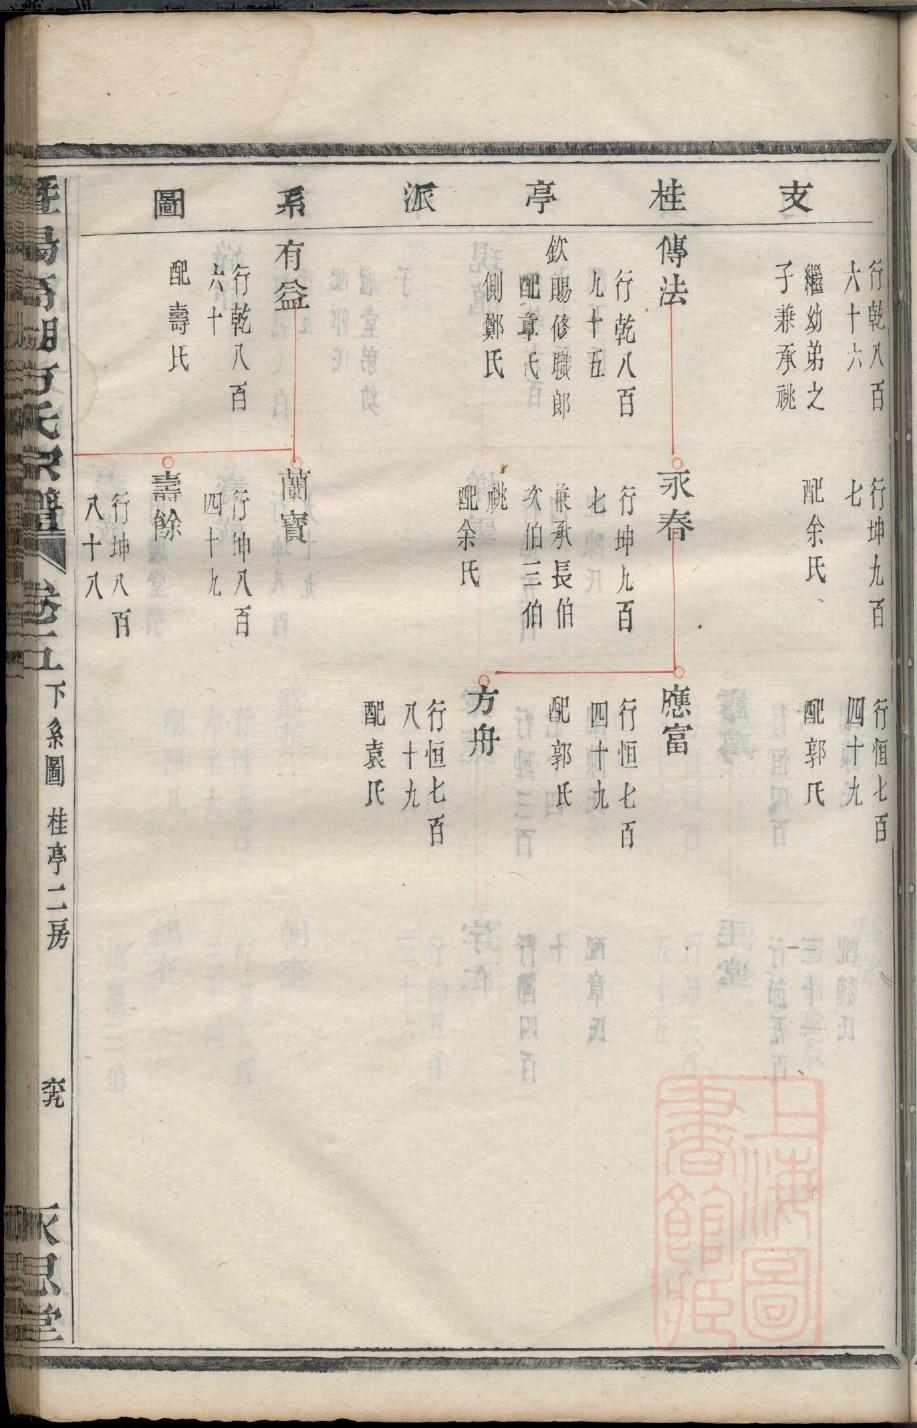 支桂亭派系圖
行乾八百
六十六
繼幼弟之
子兼承祧
傳法
行乾八百
九十五
欽賜修職郎
配章氏
側鄭氏
有益
行乾八百
六十
配壽氏
行坤九百
七
配余氏
永春
行坤九百
七
兼承長伯
次伯三伯
祧
配余氏
蘭寶
行坤八百
四十九
壽餘
行坤八百
八十八
行恒七百
四十九
配郭氏
應富
行恒七百
四十九
配郭氏
方舟
行恒七百
八十九
配袁氏
氏宗譜
卷二五
下系圖 桂亭二房
永思堂
上海圖
書館藏